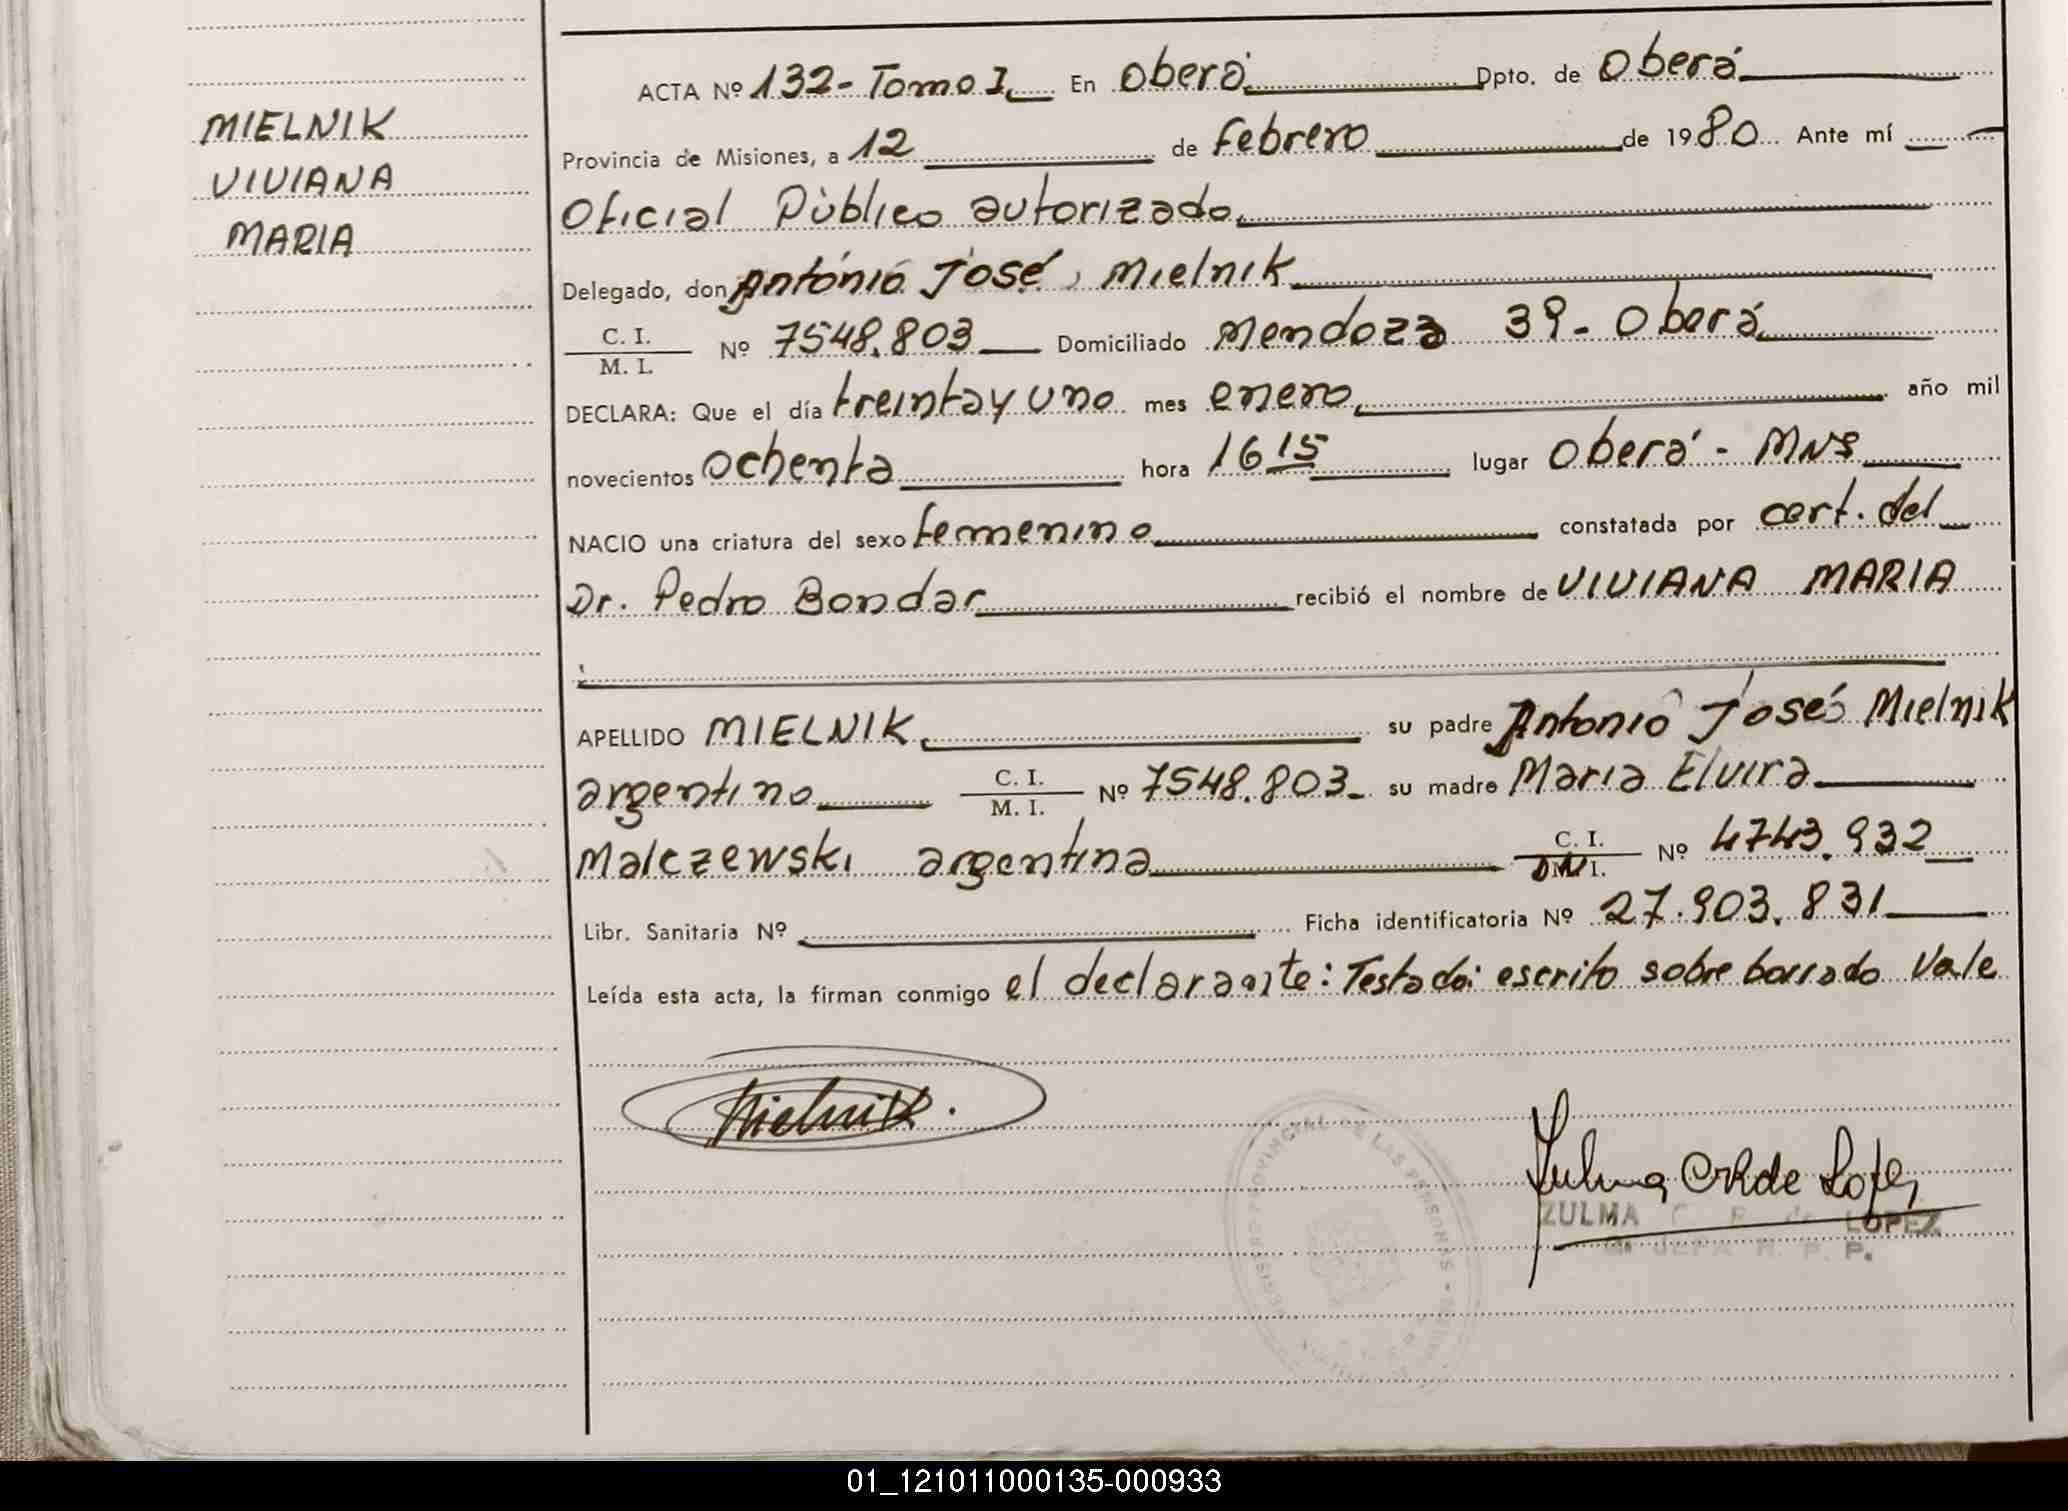 MIELNIK
VIVIANA
MARIA
ACTA Nº 132-Tomo I. En Oberá. Dpto. de Oberá
Provincia de Misiones, a 12 de Febrero de 1980 Ante mí
Oficial Público autorizado.
Delegado, don Antonio José Mielnik
C. I. / M. I. Nº 7548.803 Domiciliado Mendoza 39-Oberá
DECLARA: Que el día treinta y uno mes enero, año mil
novecientos Ochenta hora 16 15 lugar Oberá - MNS
NACIO una criatura del sexo femenino constatada por cert. del
Dr. Pedro Bondar recibió el nombre de VIVIANA MARIA
APELLIDO MIELNIK. su padre Antonio José Mielnik
argentino C. I. / M. I. Nº 7548.803- su madre Maria Elvira
Malczewski argentina C. I. / DNI. Nº 4743.932
Libr. Sanitaria Nº Ficha identificatoria Nº 27.903.831
Leída esta acta, la firman conmigo el declarante: Testado: escrito sobre borrado Vale
Mielnik.
REGISTRO PROVINCIAL DE LAS PERSONAS
Zulma C R de Lopez
ZULMA C. R. de LOPEZ
JEFA R. P. P.
01_121011000135-000933